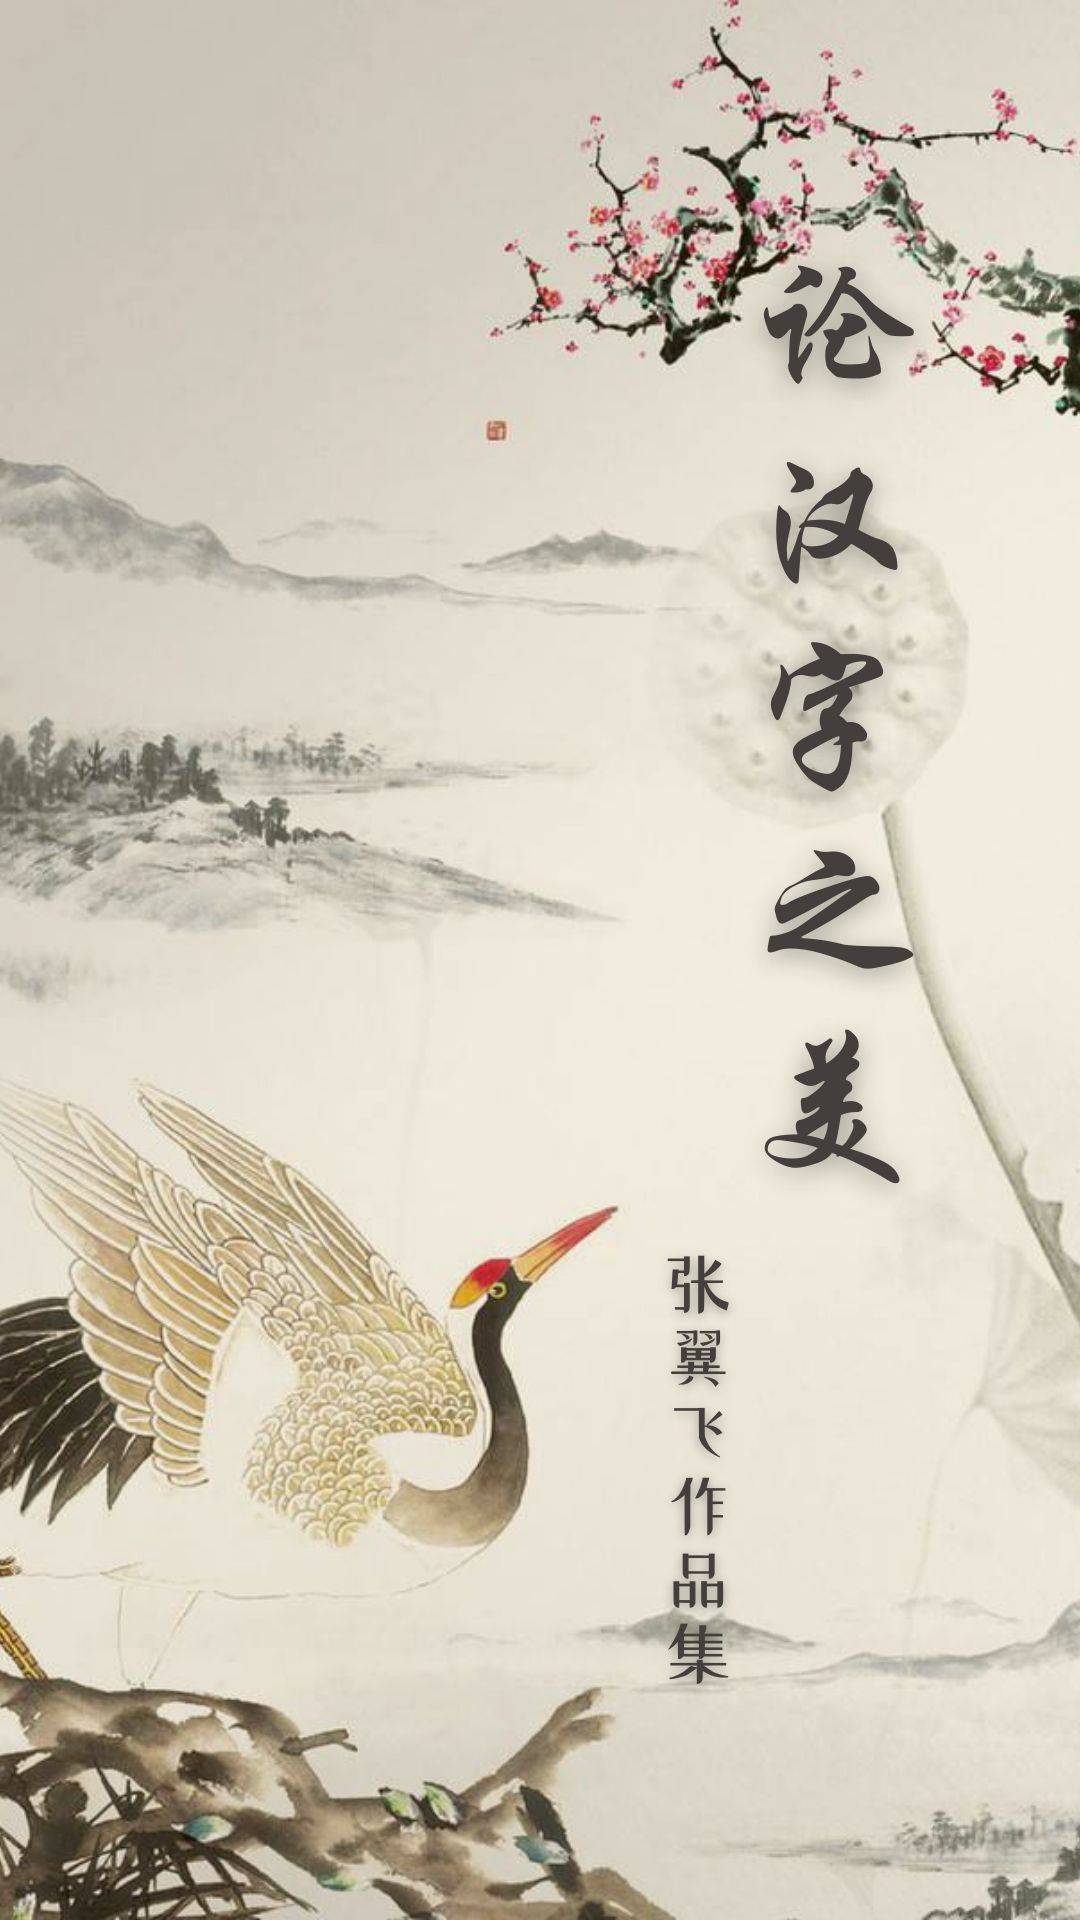 论汉字之美
张翼飞作品集